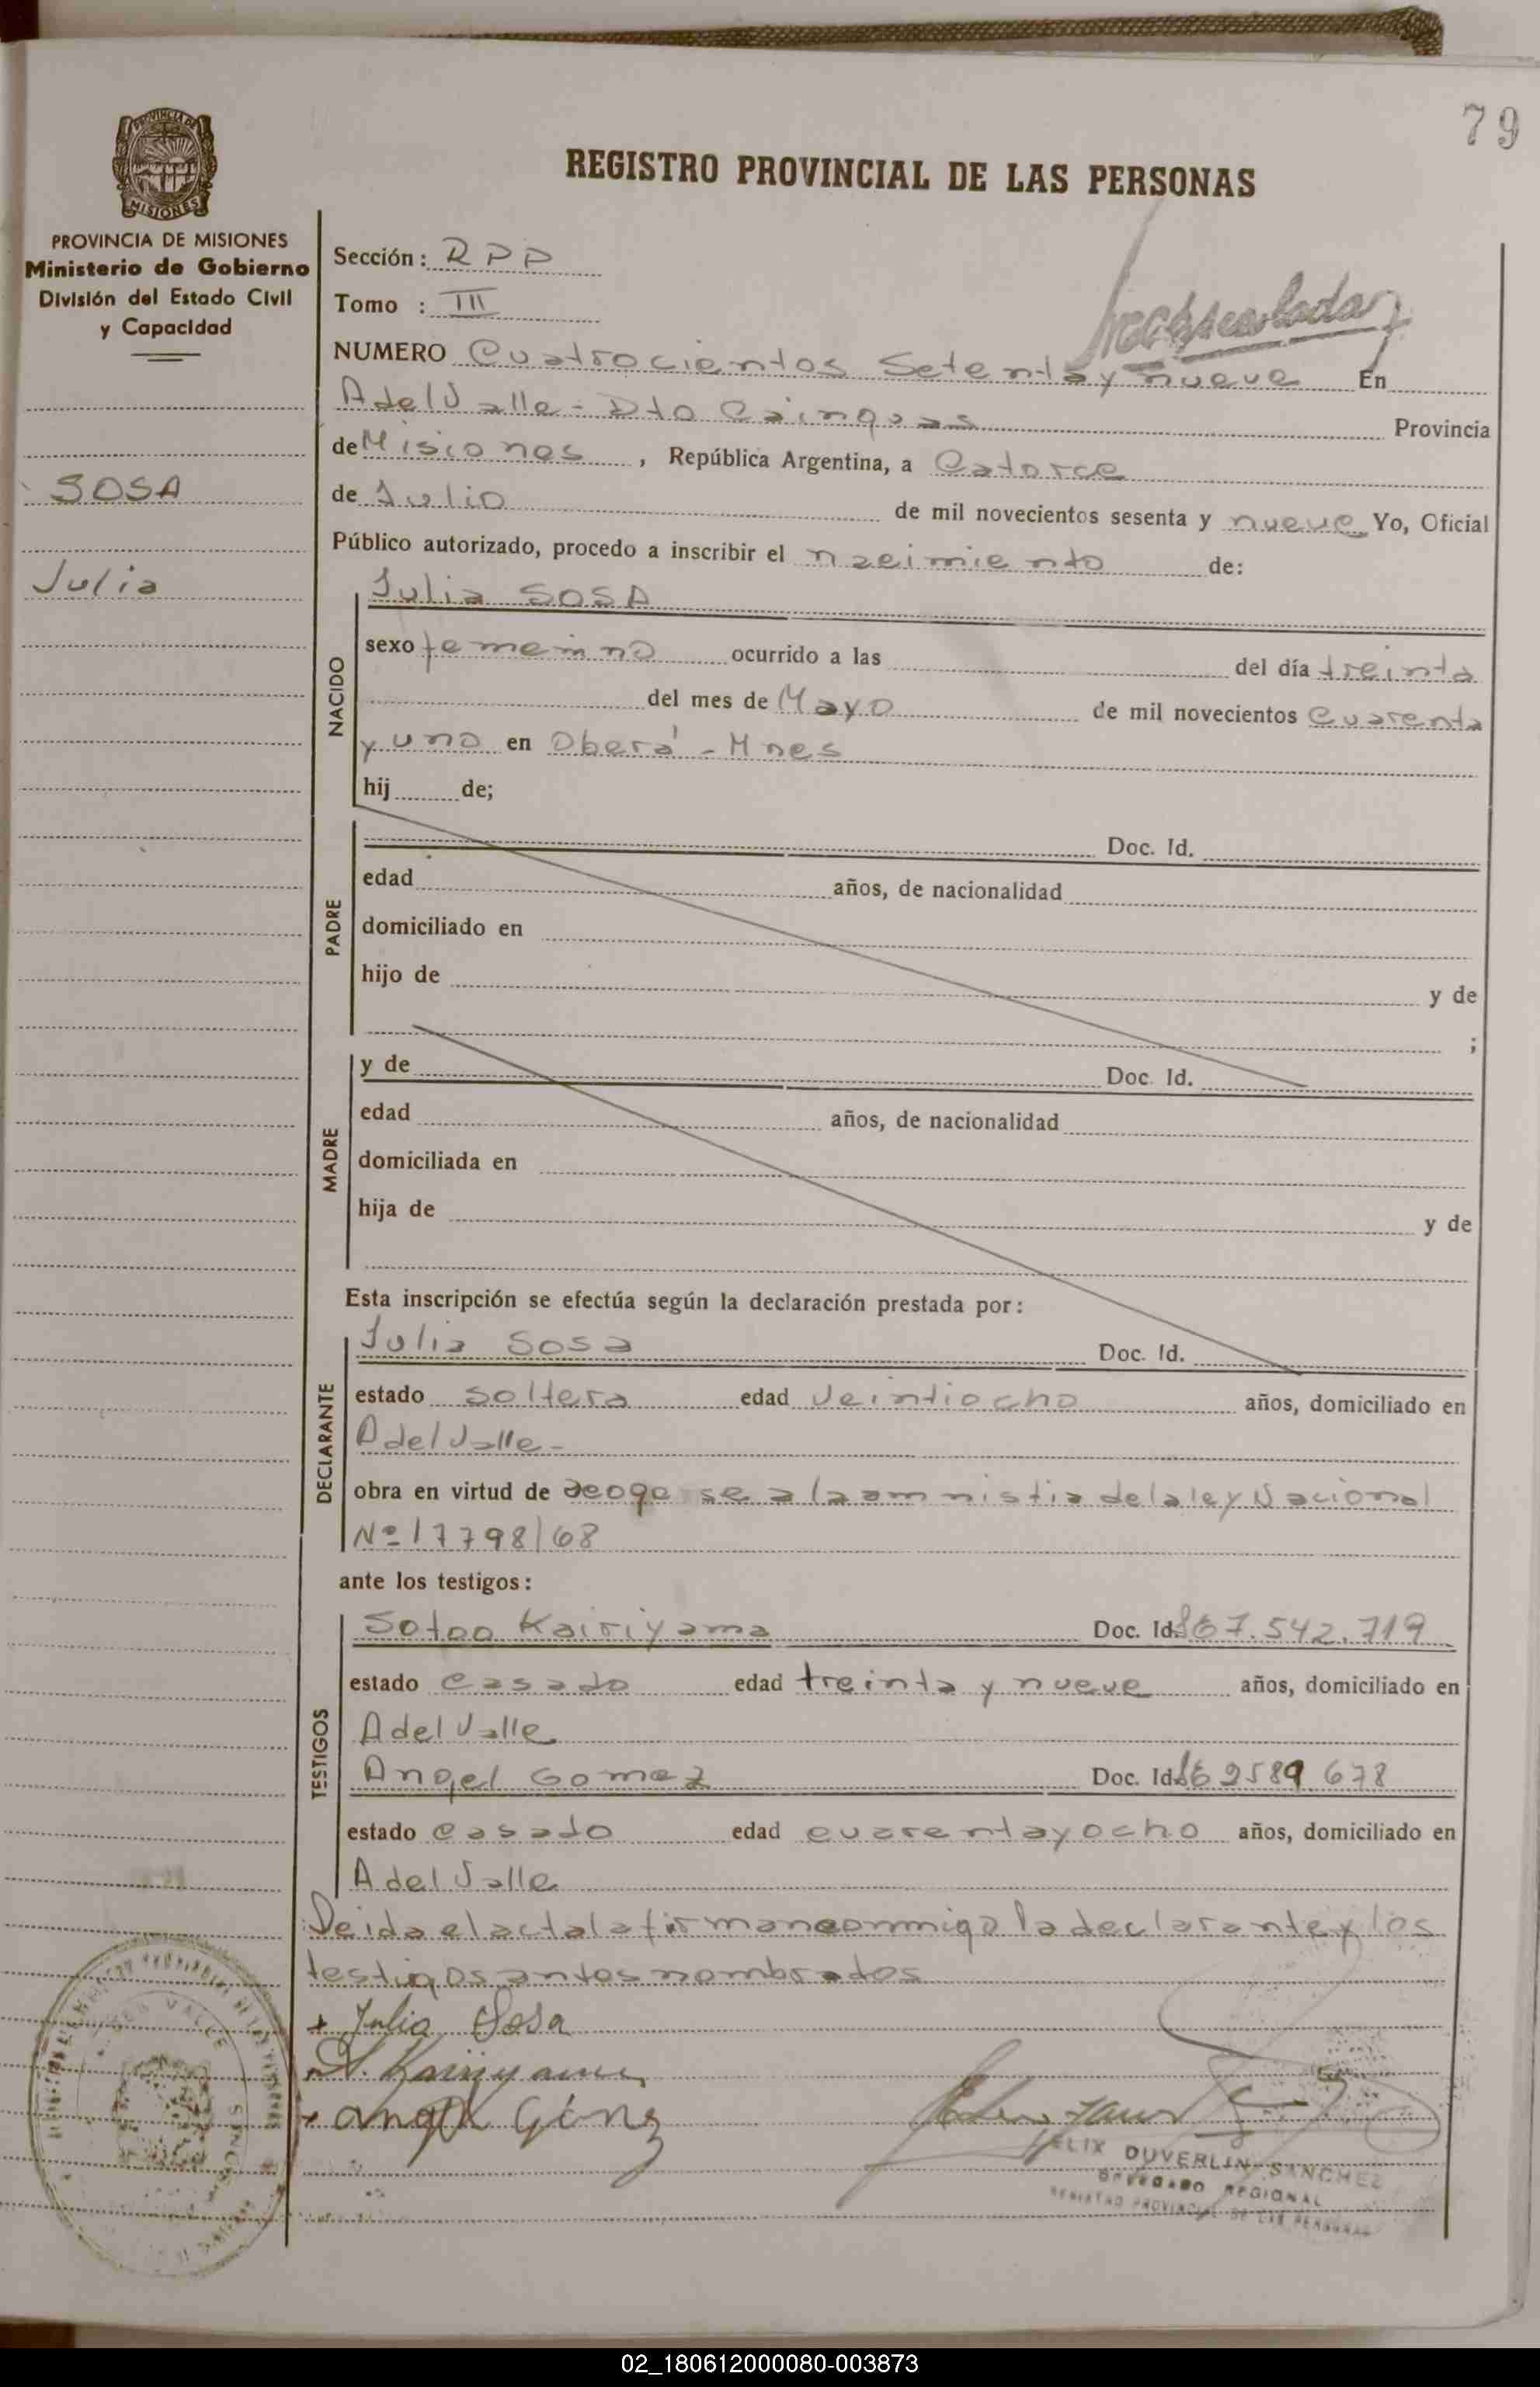 79
REGISTRO PROVINCIAL DE LAS PERSONAS
PROVINCIA DE
MISIONES
PROVINCIA DE MISIONES
Ministerio de Gobierno
División del Estado Civil
y Capacidad
SOSA
Julia
Sección: RPP
Tomo : III
NUMERO Cuatrocientos Setenta y nueve En
A del Valle - Dto Cainguas Provincia
de Misiones, República Argentina, a Catorce
de Julio de mil novecientos sesenta y nueve Yo, Oficial
Público autorizado, procedo a inscribir el nacimiento de:
NACIDO
Julia SOSA
sexo femenino ocurrido a las del día treinta
del mes de Mayo de mil novecientos Cuarenta
y uno en Oberá - Mnes
hij de;
PADRE
Doc. Id.
edad años, de nacionalidad
domiciliado en
hijo de y de
;
MADRE
y de Doc. Id.
edad años, de nacionalidad
domiciliada en
hija de y de
Esta inscripción se efectúa según la declaración prestada por:
DECLARANTE
Julia Sosa Doc. Id.
estado soltera edad veintiocho años, domiciliado en
A del Valle -
obra en virtud de acogerse a la amnistia de la ley Nacional
Nº 17798/68
ante los testigos:
TESTIGOS
Sotoo Kairiyama Doc. Id. 7.542.719
estado casado edad treinta y nueve años, domiciliado en
A del Valle
Angel Gomez Doc. Id. 2589678
estado casado edad cuarenta y ocho años, domiciliado en
A del Valle
Leida el acta la firman conmigo la declarante y los
testigos antes nombrados
+ Julia Sosa
Kairiyama
+ angel Gómez
FELIX DUVERLIN SANCHEZ
DELEGADO REGIONAL
REGISTRO PROVINCIAL DE LAS PERSONAS
02_180612000080-003873